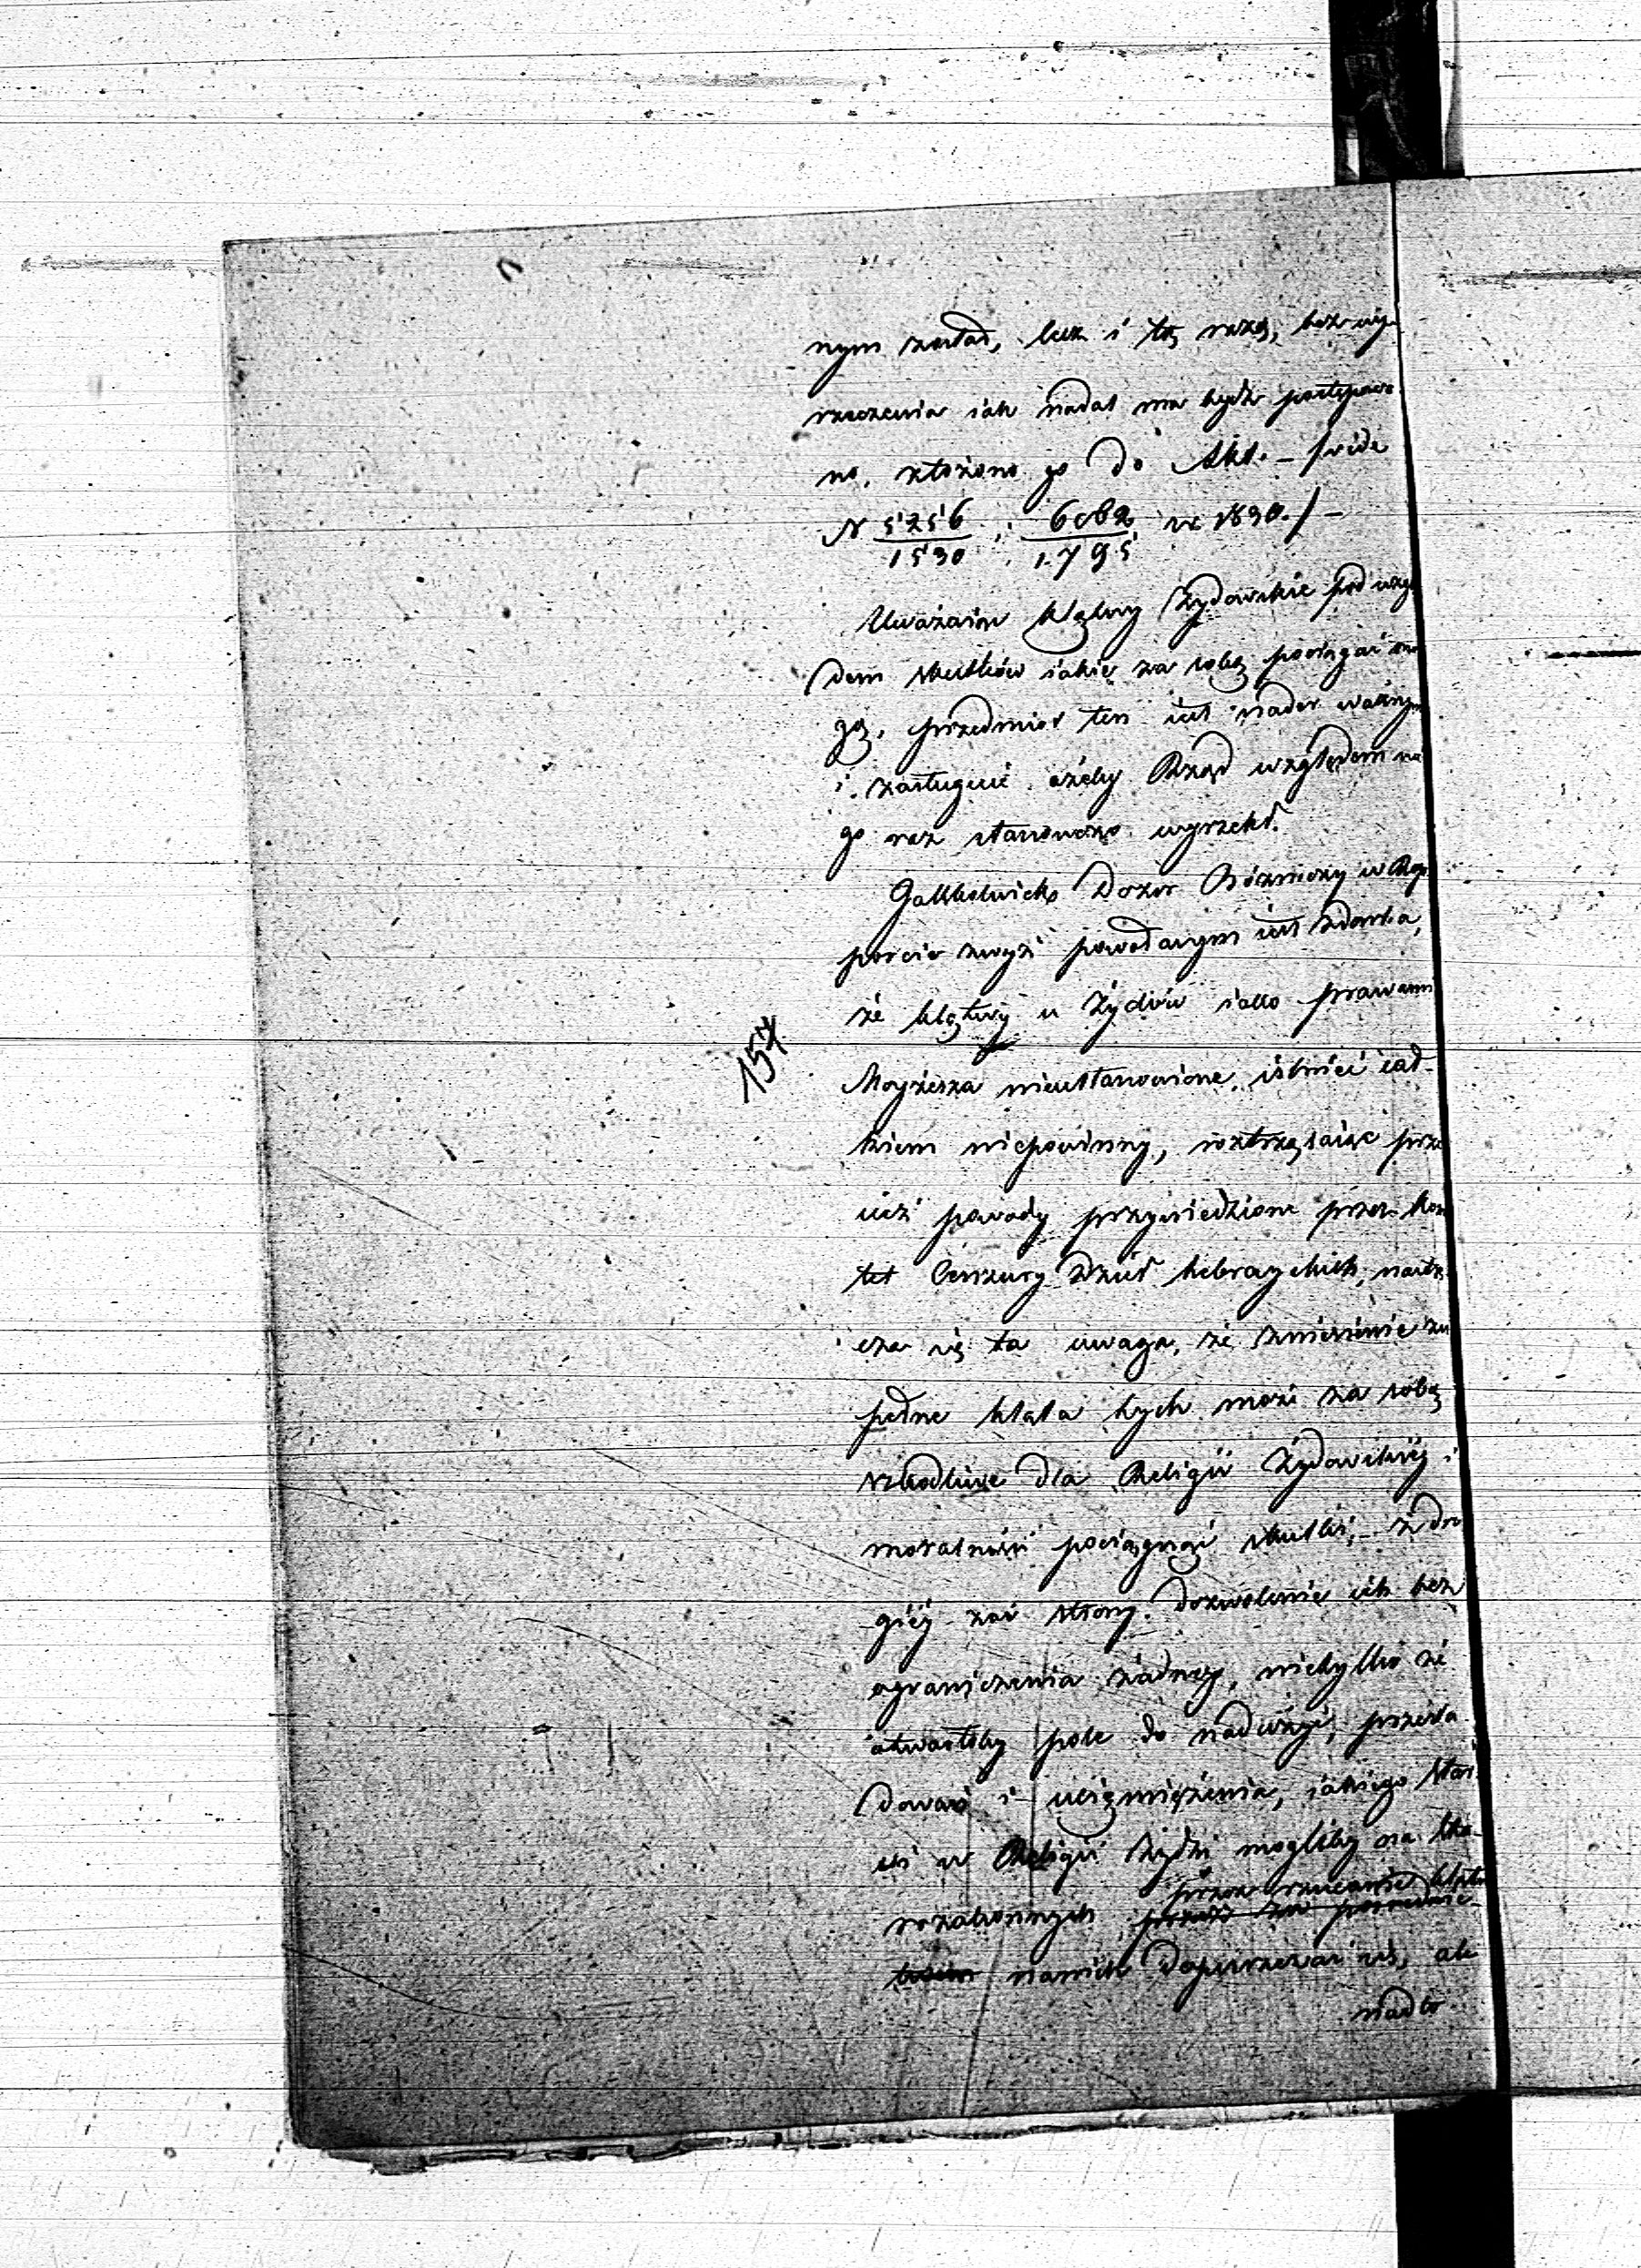 nym został, lecz i tą razą, bez wy-
rzeczenia iak nadal ma bydź postępowa
no, złożono go do Akt. – /vide
N 5256/1530 : 6082/1795 w 1830./ –
Uważaiąc klątwy Żydowskie pod wzglę
dem skutków iakie za sobą pociągać mo
gą, przedmiot ten iest nader ważnym
i zasługuie ażeby Rząd względem nie
go raz stanowczo wyrzekł.
Jakkolwiek Dozór Bóżniczy w Rap
porcie zwyż powołanym iest zdania,
że klątwy u Żydów iako prawami
157
Moyżesza nieustanowione, istnieć cał-
kiem niepowinny, roztrząsaiąc prze
cież powody przywiedzione przez Komi
tet Cenzury Dzieł hebrayskich, nastrę
cza się ta uwaga, że zniesienie zu
pełne klątw tych może za sobą
szkodliwe dla Religii Żydowskiey i
moralności pociągnąć skutki, – z dru
giéy zaś strony dozwolenie ich bez
ograniczenia żadnego, nietylko że
otwarłoby pole do nadużyć, prześla
dowań i uciemiężenia, iakiego Star
si w Religii Żydzi mogliby na
przez rzucanie klątw
nanich dopuszczać się, ale
nadto